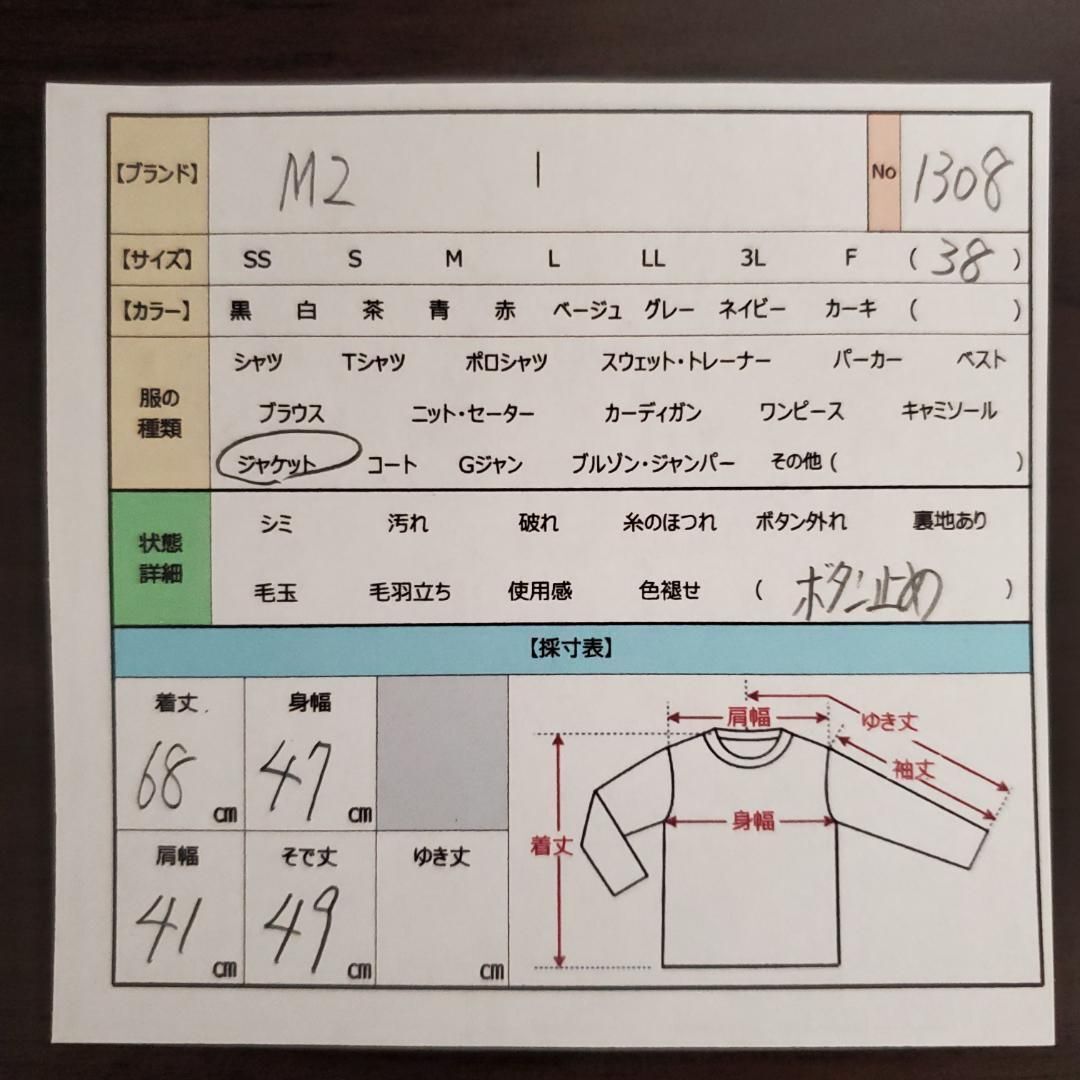 【ブランド】 M2 | No 1308
【サイズ】 SS S M L LL 3L F ( 38 )
【カラー】 黒 白 茶 青 赤 ベージュ グレー ネイビー カーキ ( )
服の
種類
シャツ Tシャツ ポロシャツ スウェット・トレーナー パーカー ベスト
ブラウス ニット・セーター カーディガン ワンピース キャミソール
ジャケット コート Gジャン ブルゾン・ジャンパー その他 ( )
状態
詳細
シミ 汚れ 破れ 糸のほつれ ボタン外れ 裏地あり
毛玉 毛羽立ち 使用感 色褪せ ( ボタン止め )
【採寸表】
着丈 身幅
68 cm 47 cm
肩幅 そで丈 ゆき丈
41 cm 49 cm cm
肩幅 ゆき丈
袖丈
身幅
着丈